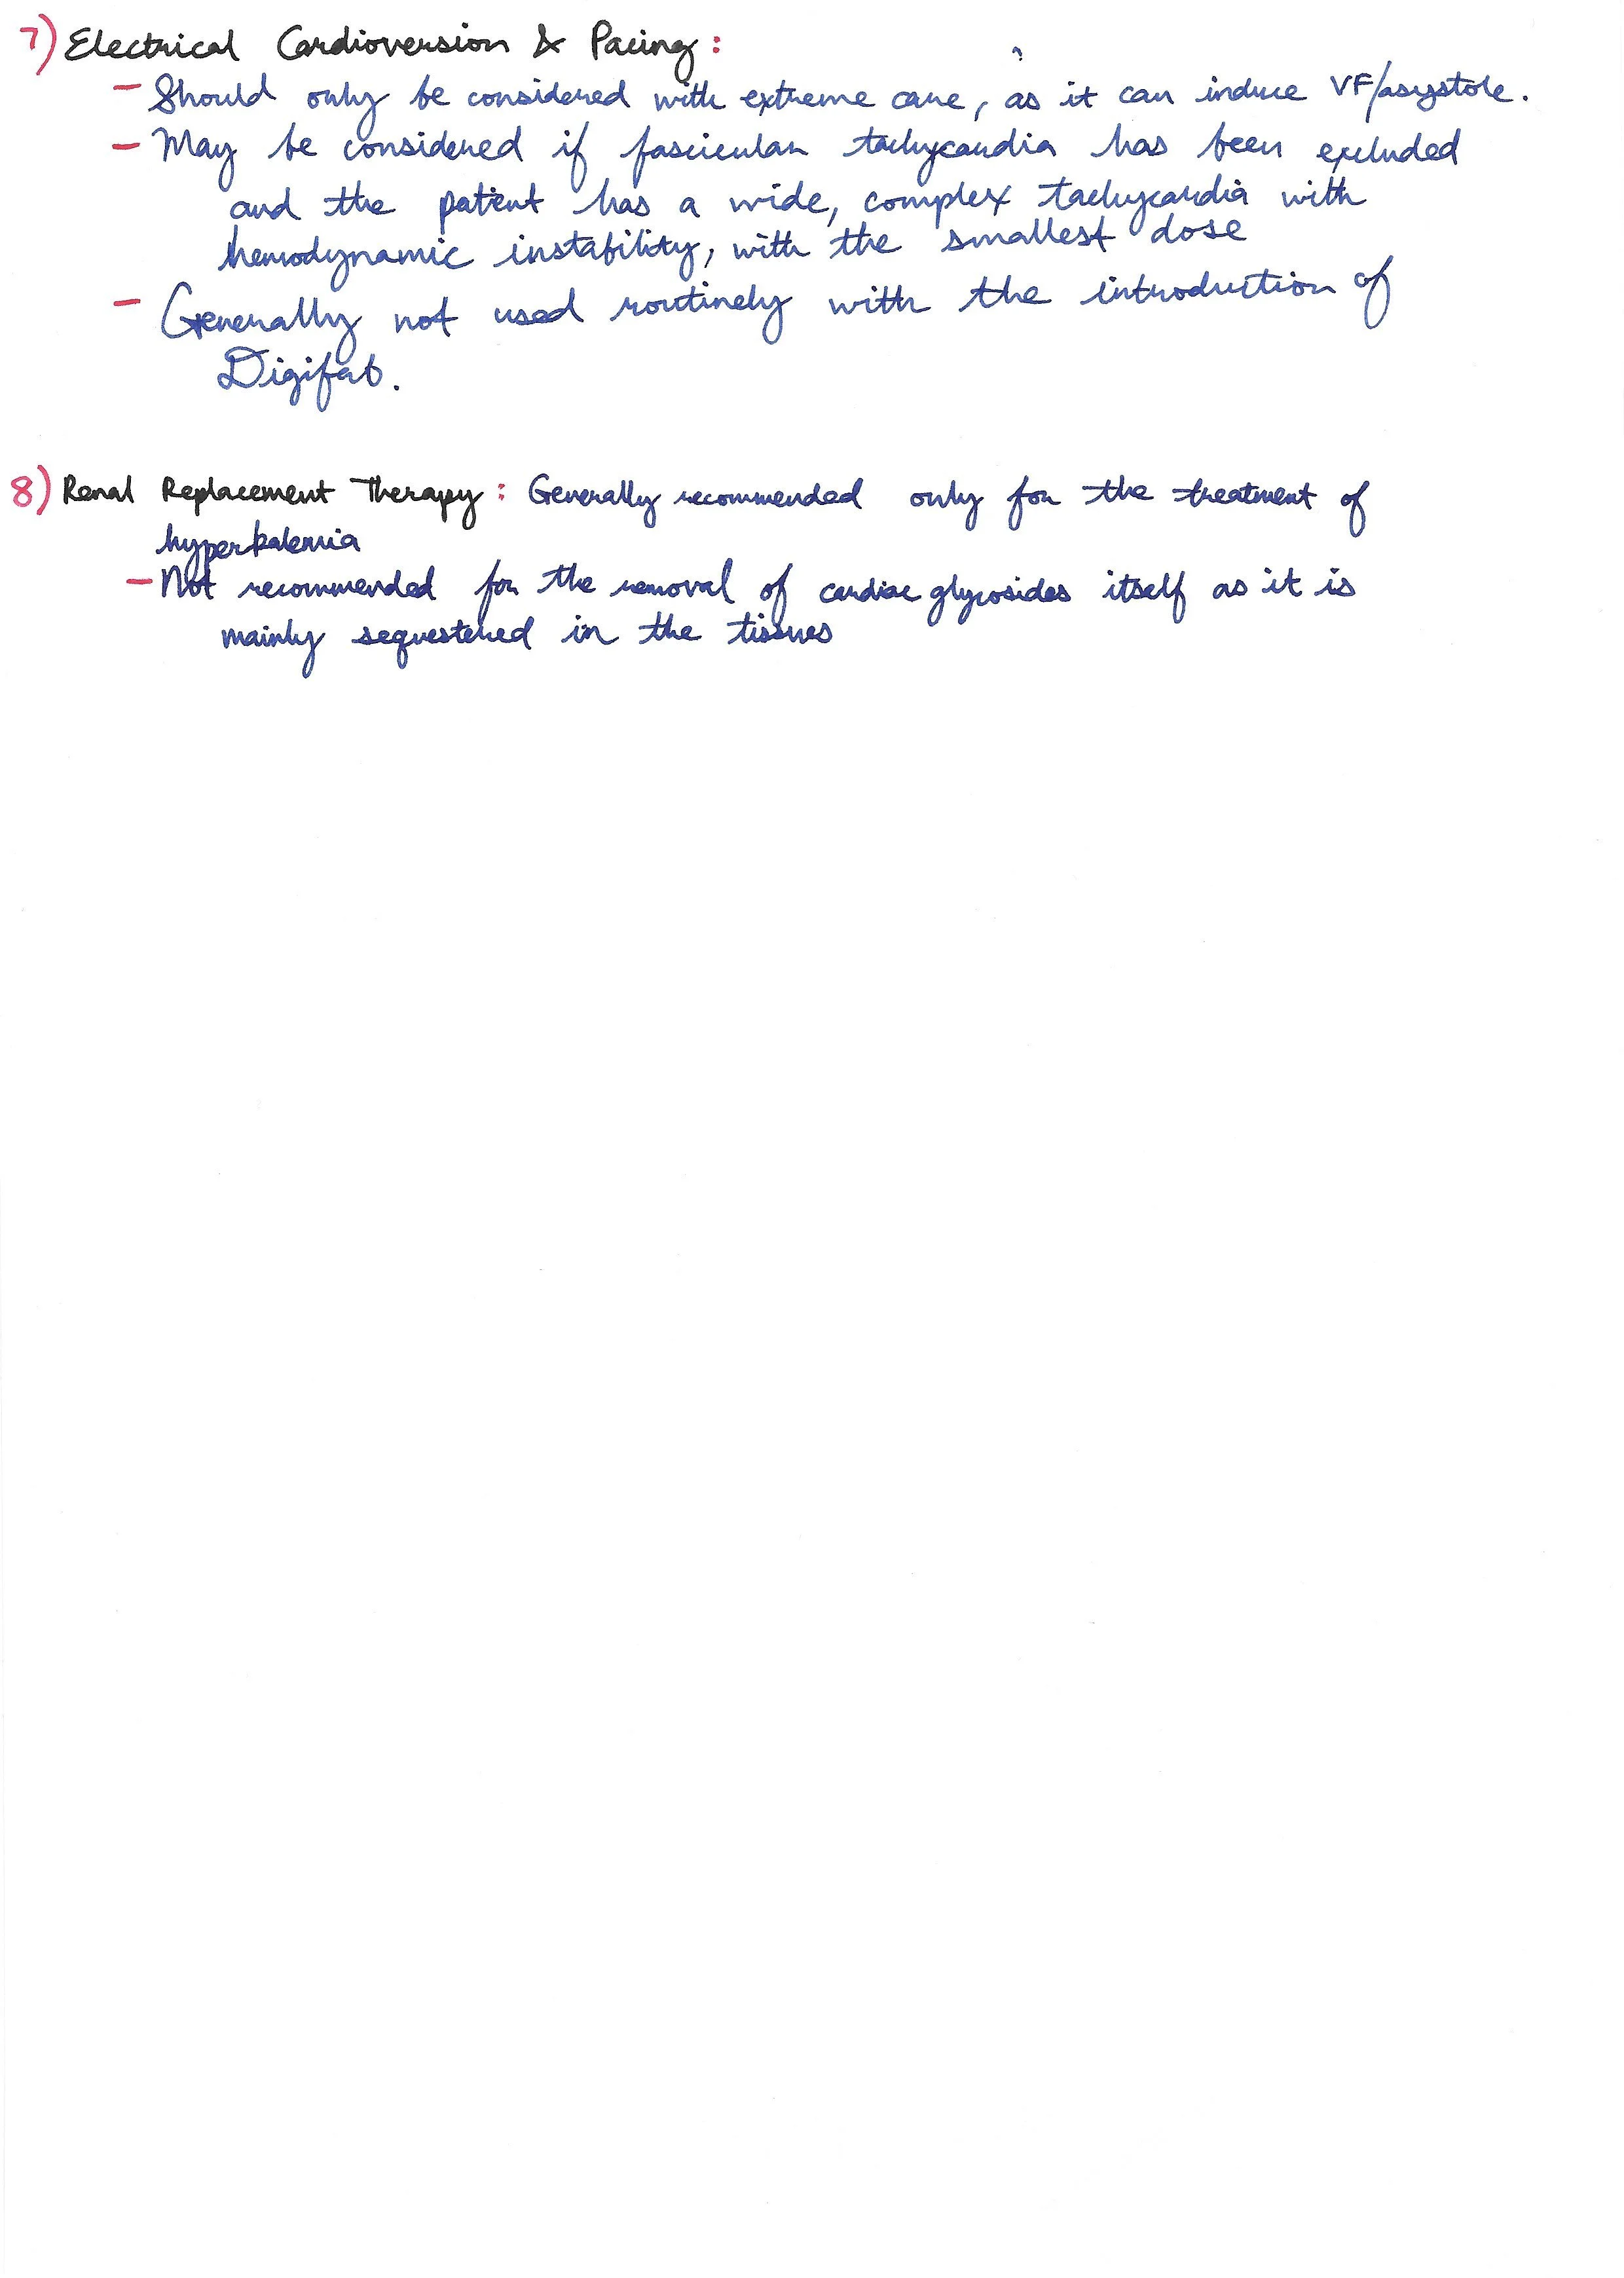 7) Electrical Cardioversion & Pacing:
- Should only be considered with extreme care, as it can induce VF/asystole.
- May be considered if fascicular tachycardia has been excluded
and the patient has a wide, complex tachycardia with
hemodynamic instability, with the smallest dose
- Generally not used routinely with the introduction of
Digifab.
8) Renal Replacement Therapy: Generally recommended only for the treatment of
hyperkalemia
- Not recommended for the removal of cardiac glycosides itself as it is
mainly sequestered in the tissues